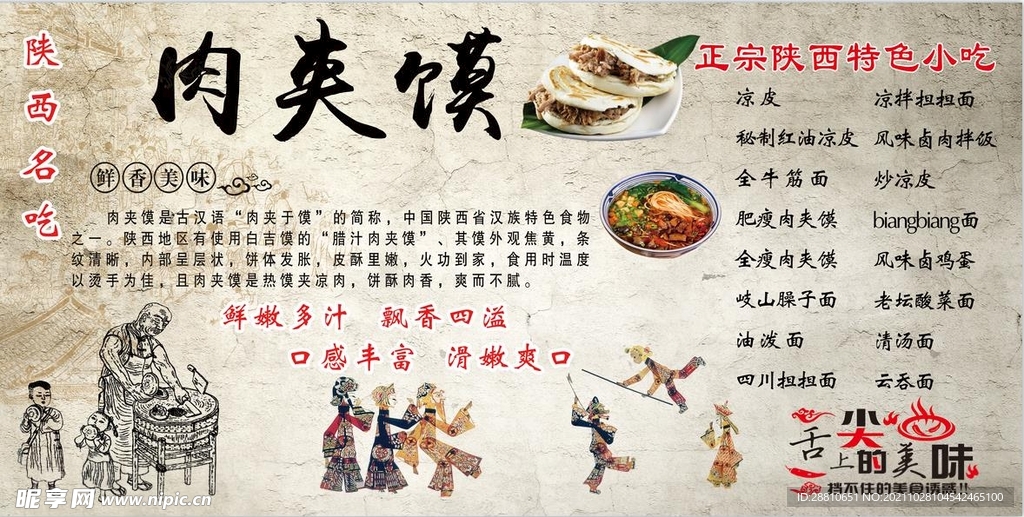 陕西名吃
肉夹馍
鲜香美味
肉夹馍是古汉语“肉夹于馍”的简称，中国陕西省汉族特色食物
之一。陕西地区有使用白吉馍的“腊汁肉夹馍”、其馍外观焦黄，条
纹清晰，内部呈层状，饼体发胀，皮酥里嫩，火功到家，食用时温度
以烫手为佳，且肉夹馍是热馍夹凉肉，饼酥肉香，爽而不腻。
鲜嫩多汁 飘香四溢
口感丰富 滑嫩爽口
正宗陕西特色小吃
凉皮 凉拌担担面
秘制红油凉皮 风味卤肉拌饭
全牛筋面 炒凉皮
肥瘦肉夹馍 biangbiang面
全瘦肉夹馍 风味卤鸡蛋
岐山臊子面 老坛酸菜面
油泼面 清汤面
四川担担面 云吞面
舌尖上的美味
挡不住的美食诱惑!!
昵享网 www.nipic.cn
ID:28810651 NO:20211028104542465100